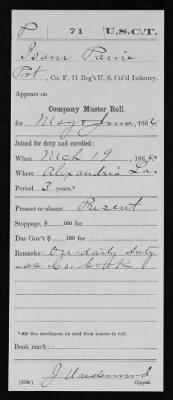 P 71 U.S.C.T.
Isom Paine
Pvt, Co. F, 71 Reg't U. S. Col'd Infantry.
Appears on
Company Muster Roll
for May & June, 1864.
Joined for duty and enrolled:
When Mch 19, 1864.*
Where Alexandria La.
Period 3 years.*
Present or absent Present
Stoppage, $ 100 for
Due Gov't $ 100 for
Remarks: On daily duty
as Co. Cook
* See enrollment on card from muster-in roll.
Book mark:
(858c) Copyist.